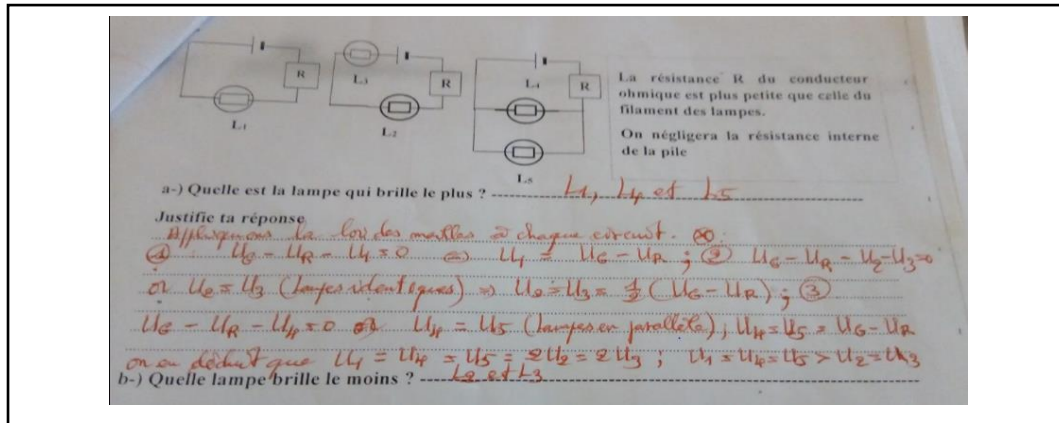 R
L1
L3
R
L2
L4
R
L5
La résistance R du conducteur
ohmique est plus petite que celle du
filament des lampes.
On négligera la résistance interne
de la pile
a-) Quelle est la lampe qui brille le plus ? L1, L4 et L5
Justifie ta réponse
Appliquons la loi des mailles à chaque circuit.
① UG - UR - U1 = 0 ⇔ U1 = UG - UR ; ② UG - UR - U2 - U3 = 0
or U2 = U3 (lampes identiques) ⇒ U2 = U3 = 1/2 (UG - UR) ; ③
UG - UR - U4 = 0 or U4 = U5 (lampes en parallèle), U4 = U5 = UG - UR
on en déduit que U1 = U4 = U5 = 2U2 = 2U3 ; U1 = U4 = U5 > U2 = U3
b-) Quelle lampe brille le moins ? L2 et L3